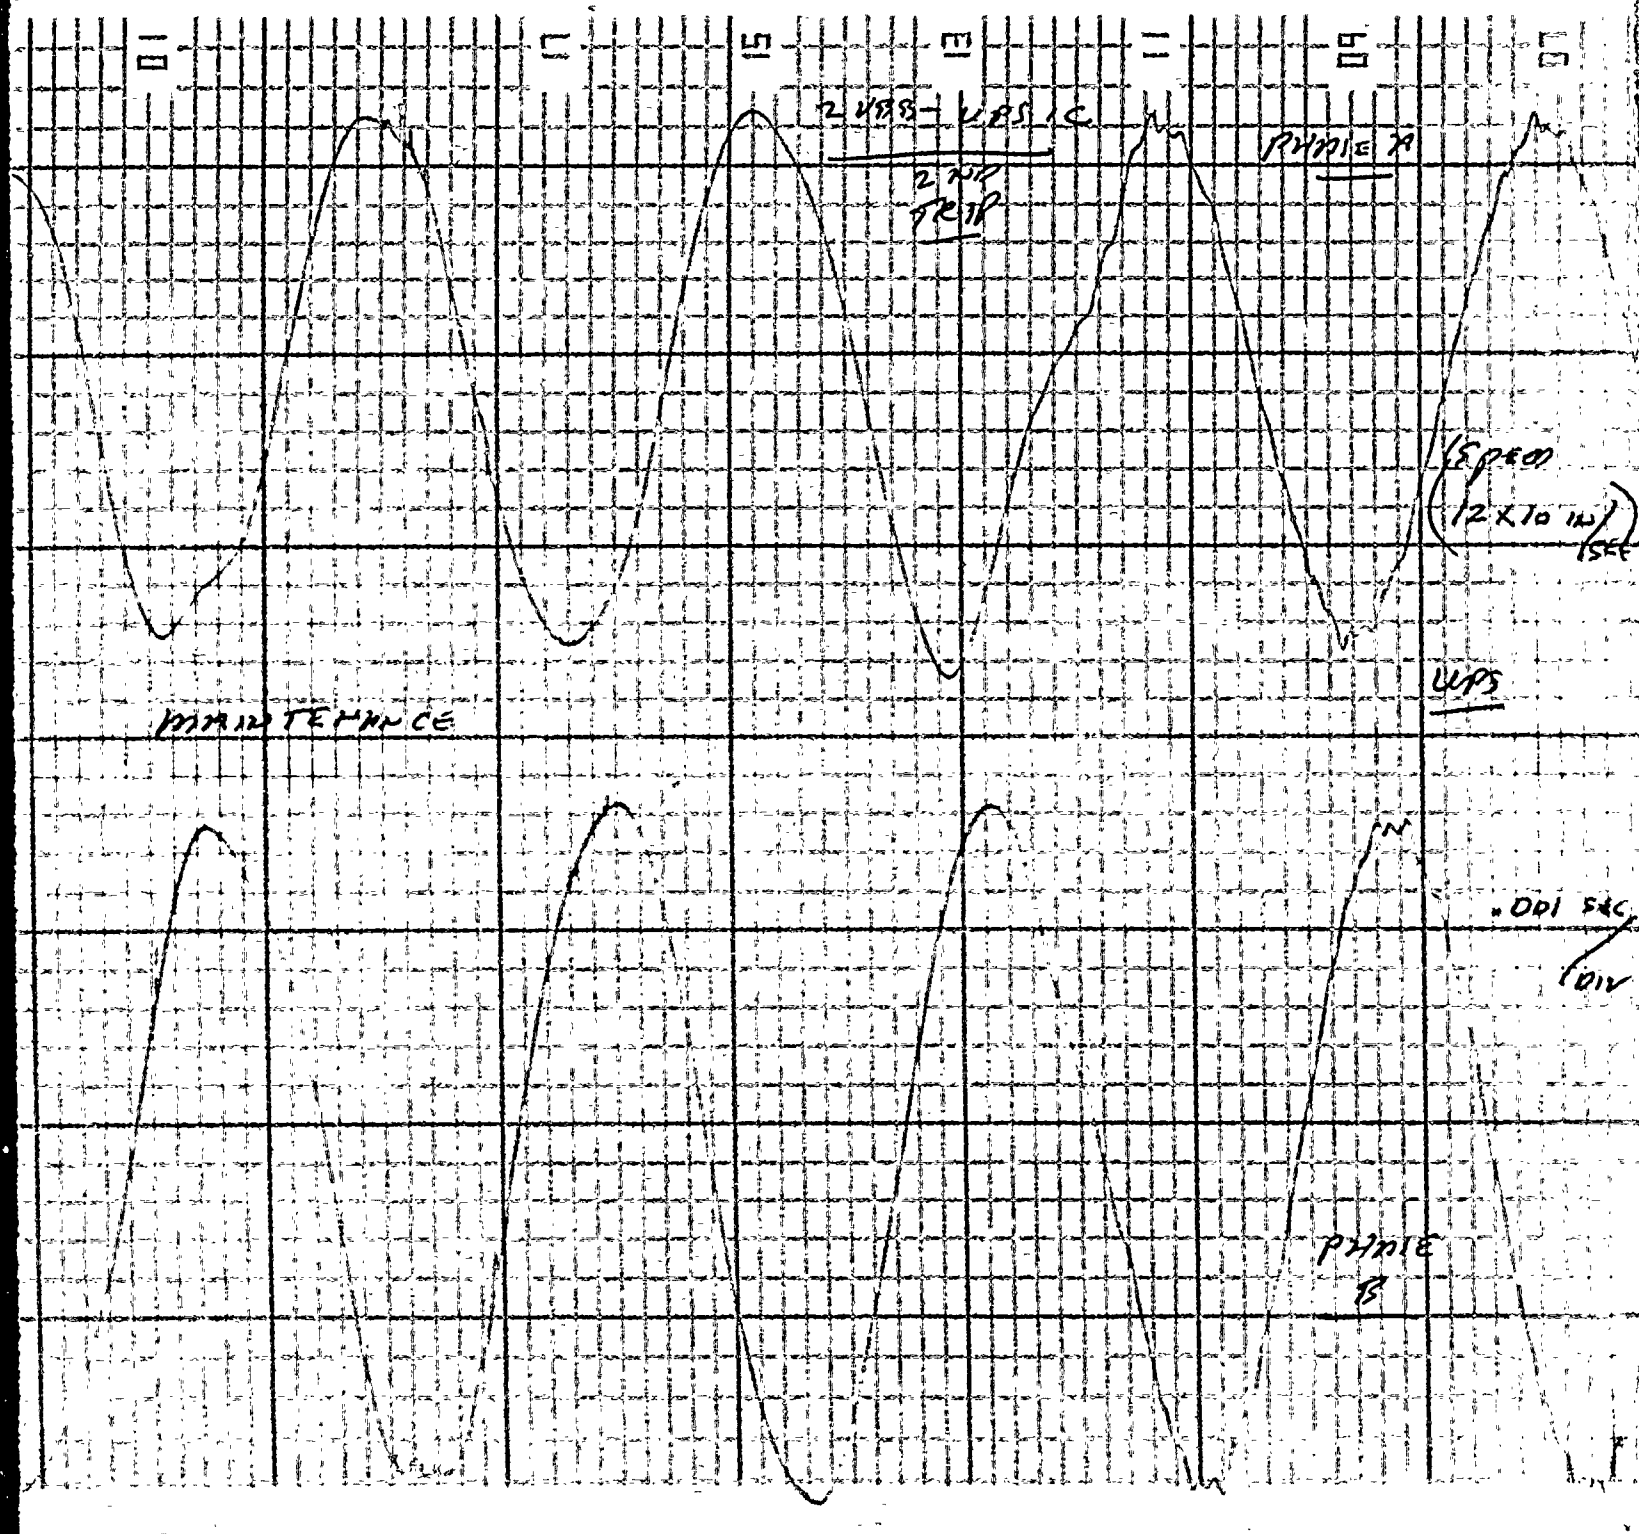 2VBB-UPS 1C
2 ND
TRIP
PHASE A
(SPEED
12 X 10 IN/
SEC)
UPS
MAINTENANCE
.001 SEC
/DIV
PHASE
B